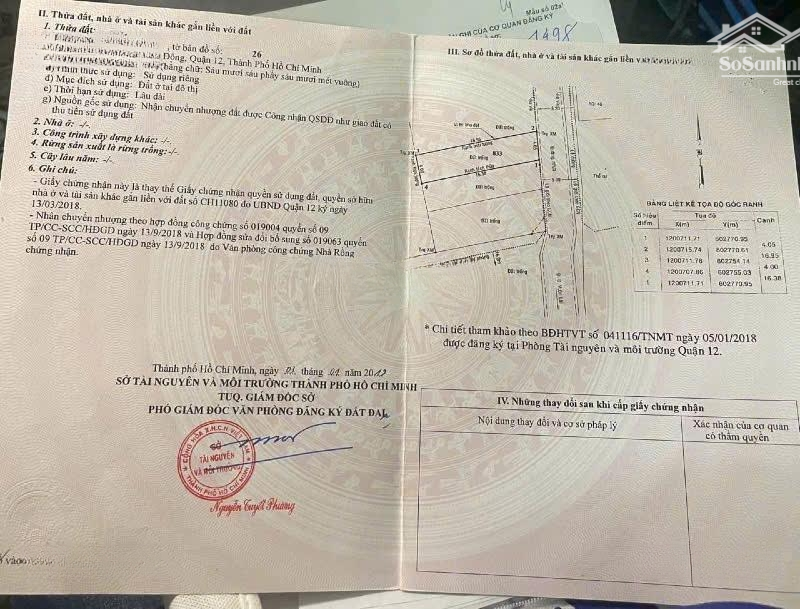 Mẫu số 02a
GHI CỦA CƠ QUAN ĐĂNG KÝ
1498
SoSanhNh
Great c
II. Thửa đất, nhà ở và tài sản khác gắn liền với đất
1. Thửa đất:
tờ bản đồ số: 26
Đông, Quận 12, Thành Phố Hồ Chí Minh
(bằng chữ: Sáu mươi sáu phẩy sáu mươi mét vuông)
Hình thức sử dụng: Sử dụng riêng
d) Mục đích sử dụng: Đất ở tại đô thị
e) Thời hạn sử dụng: Lâu dài
g) Nguồn gốc sử dụng: Nhận chuyển nhượng đất được Công nhận QSDĐ như giao đất có
thu tiền sử dụng đất
2. Nhà ở: -/-
3. Công trình xây dựng khác: -/-
4. Rừng sản xuất là rừng trồng:-/-
5. Cây lâu năm: -/-
6. Ghi chú:
- Giấy chứng nhận này là thay thế Giấy chứng nhận quyền sử dụng đất, quyền sở hữu
nhà ở và tài sản khác gắn liền với đất số CH11080 do UBND Quận 12 ký ngày
13/03/2018.
- Nhận chuyển nhượng theo hợp đồng công chứng số 019004 quyển số 09
TP/CC-SCC/HĐGD ngày 13/9/2018 và Hợp đồng sửa đổi bổ sung số 019063 quyển
số 09 TP/CC-SCC/HĐGD ngày 13/9/2018 do Văn phòng công chứng Nhà Rồng
chứng nhận.
Thành phố Hồ Chí Minh, ngày tháng năm
SỞ TÀI NGUYÊN VÀ MÔI TRƯỜNG THÀNH PHỐ HỒ CHÍ MINH
TUQ. GIÁM ĐỐC SỞ
PHÓ GIÁM ĐỐC VĂN PHÒNG ĐĂNG KÝ ĐẤT ĐAI
CỘNG HÒA X.H.C.N VIỆT NAM
SỞ
TÀI NGUYÊN
VÀ MÔI TRƯỜNG
THÀNH PHỐ HỒ CHÍ MINH
Nguyễn Tuyết Phương
III. Sơ đồ thửa đất, nhà ở và tài sản khác gắn liền
Đất trống
833
Đất trống
Đất trống
Đất trống
Trụ XM
Thổ cư
BẢNG LIỆT KÊ TỌA ĐỘ GÓC RANH
Số hiệu điểm Tọa độ Cạnh
X(m) Y(m)
1 1200711.71 602770.95
4.05
2 1200715.74 602770.61
16.95
3 1200711.78 602754.14
4.00
4 1200707.86 602755.03
16.38
1 1200711.71 602770.95
* Chi tiết tham khảo theo BĐHTVT số 041116/TNMT ngày 05/01/2018
được đăng ký tại Phòng Tài nguyên và môi trường Quận 12.
IV. Những thay đổi sau khi cấp giấy chứng nhận
Nội dung thay đổi và cơ sở pháp lý
Xác nhận của cơ quan
có thẩm quyền